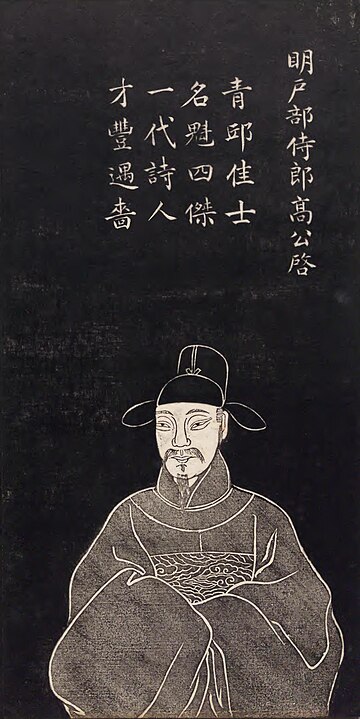 明戸部侍郎髙公啓
青邱佳士
名魁四傑
一代詩人
才豐遇嗇